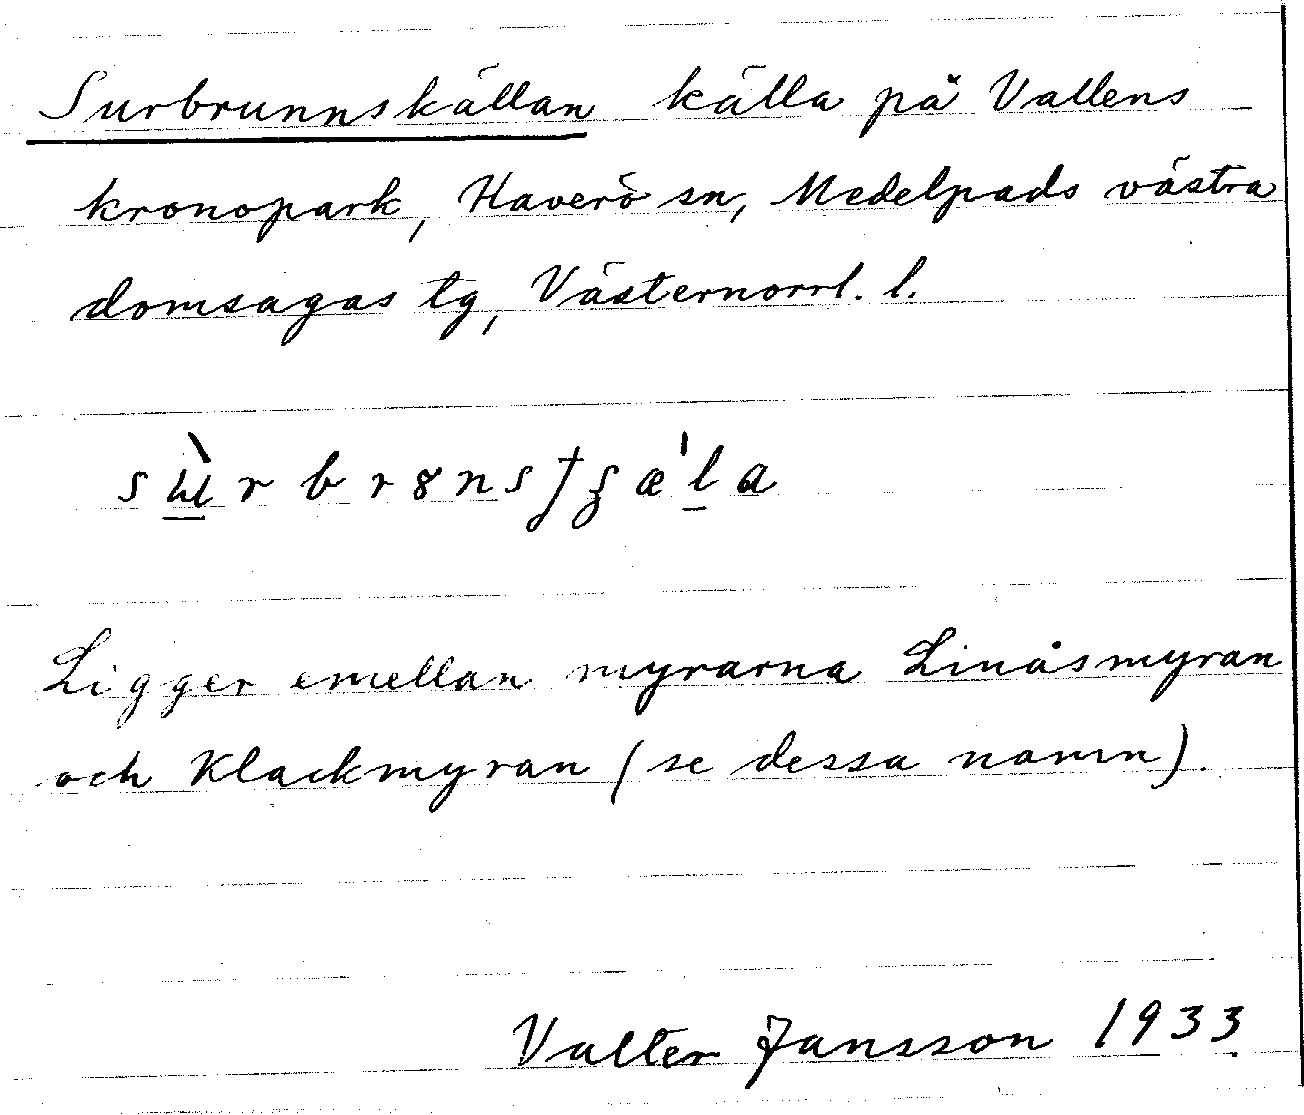 Surbrunnskällan källa på Vallens
kronopark, Haverö sn, Medelpads västra
domsagas tg, Västernorrl. l.
Ligger emellan myrarna Linåsmyran
och Klackmyran (se dessa namn).
Valter Jansson 1933